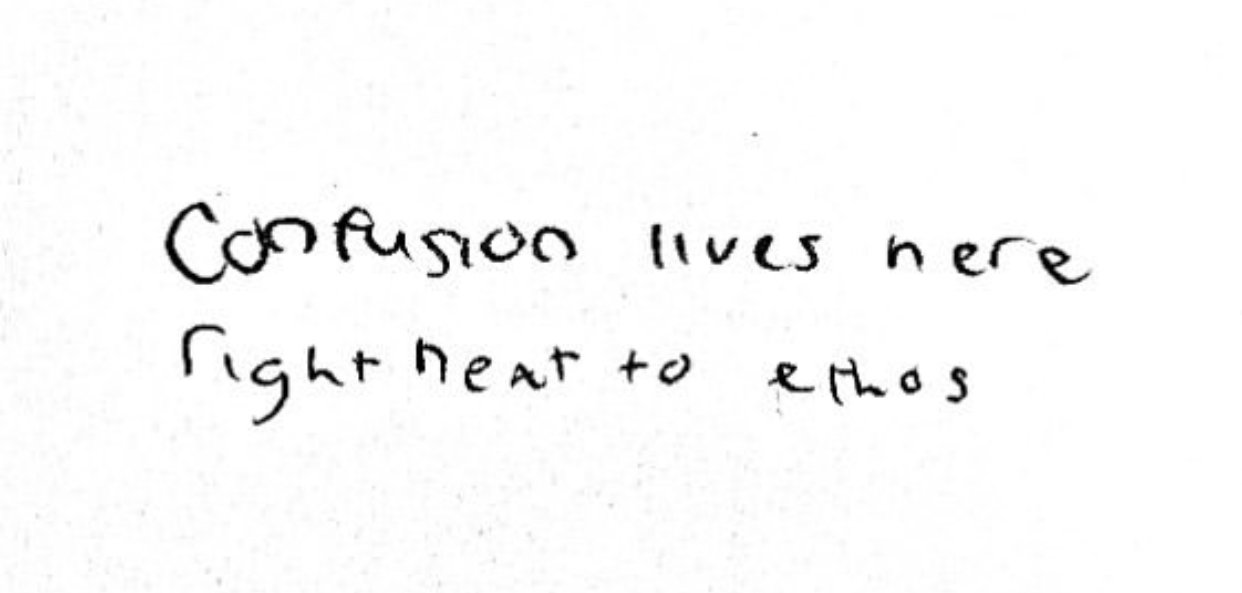 Confusion lives here
right next to ethos